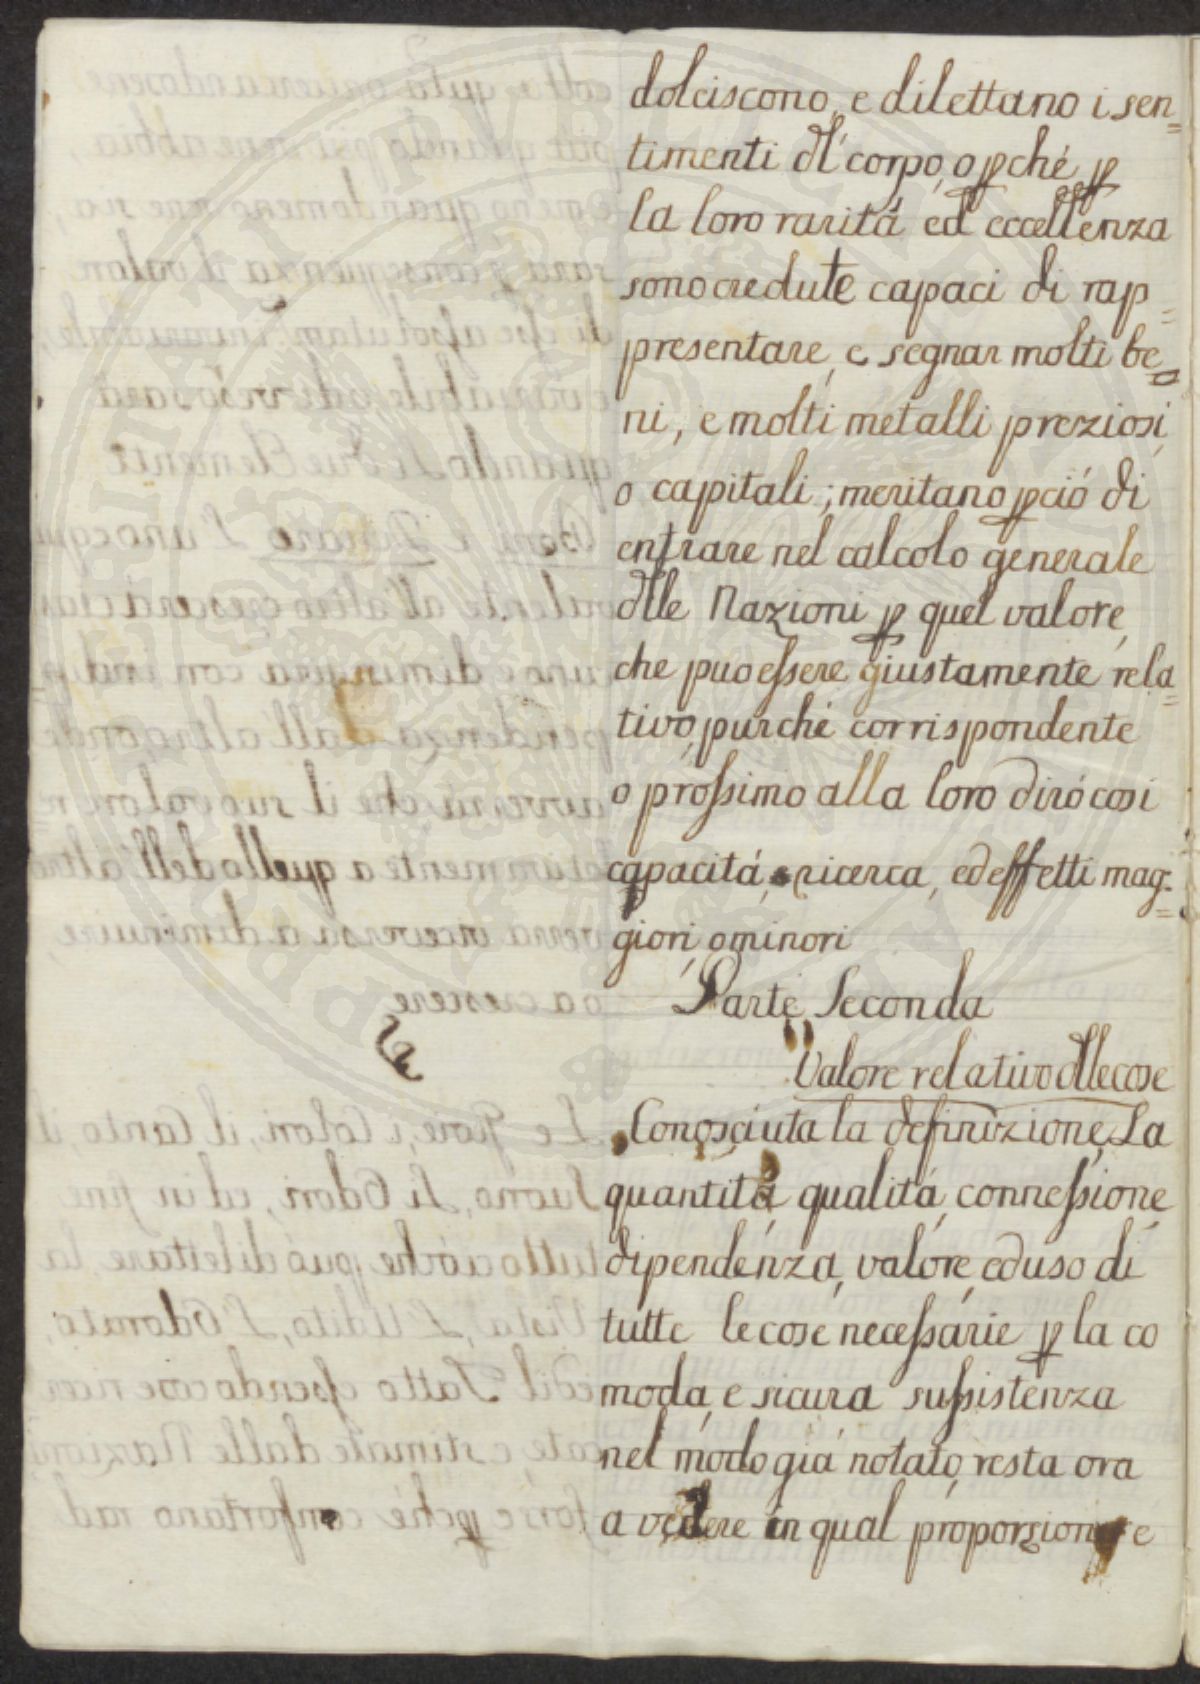 dolciscono, e dilettano i sen=
timenti dl' corpo, o pché p
la loro raritá ed eccellenza
sono credute capaci di rap=
presentare, e segnar molti be=
ni, e molti metalli preziosi,
o capitali; meritano pció di
entrare nel calcolo generale
dlle Nazioni p quel valore,
che puo essere giustamente rela=
tivo, purché corrispondente
o prossimo alla loro diró cosi
capacitá, e ricerca, ed effetti mag=
giori, o minori
Parte Seconda
Valore relativo dlle cose
Conosciuta la definizione, La
quantitá qualitá, connessione,
dipendenza, valore, ed uso di
tutte le cose necessarie p la co
moda, e sicura sussistenza
nel modo giá notato, resta ora
a vedere in qual proporzione e